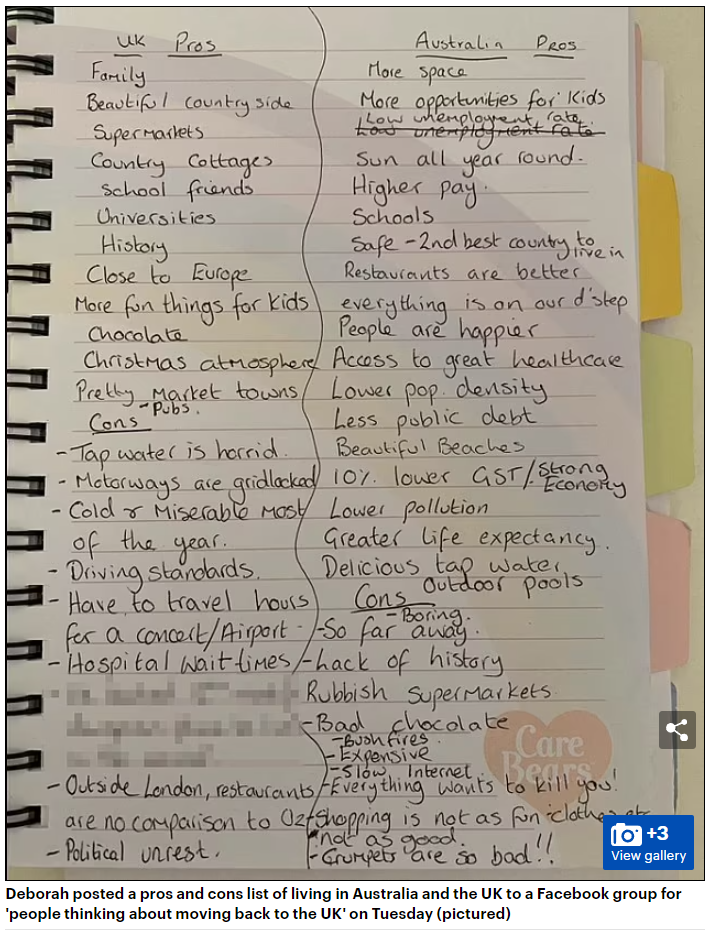 UK Pros
Family
Beautiful countryside
Supermarkets
Country Cottages
School friends
Universities
History
Close to Europe
More fun things for kids
Chocolate
Christmas atmosphere
Pretty Market towns
- Pubs.
Cons
- Tap water is horrid.
- Motorways are gridlocked
- Cold & Miserable Most
of the year.
- Driving standards.
- Have to travel hours
for a concert/Airport.
- Hospital wait times
- Outside London, restaurants
are no comparison to Oz
- Political unrest.
Australia Pros
More space
More opportunities for Kids
Low unemployment rate.
Low unemployment rate
Sun all year round.
Higher pay.
Schools
Safe - 2nd best country to
live in
Restaurants are better
everything is on our d'step
People are happier
Access to great healthcare
Lower pop. density
Less public debt
Beautiful Beaches
10% lower GST/Strong
Economy
Lower pollution
Greater life expectancy.
Delicious tap water
Outdoor pools
Cons
- Boring.
- So far away.
- Lack of history
Rubbish Supermarkets
- Bad chocolate
- Bushfires.
- Expensive
- Slow Internet.
- Everything wants to kill you!
- Shopping is not as fun clothes etc
not as good.
- Crumpets are so bad!!
Care
Bears
+3
View gallery
Deborah posted a pros and cons list of living in Australia and the UK to a Facebook group for
'people thinking about moving back to the UK' on Tuesday (pictured)